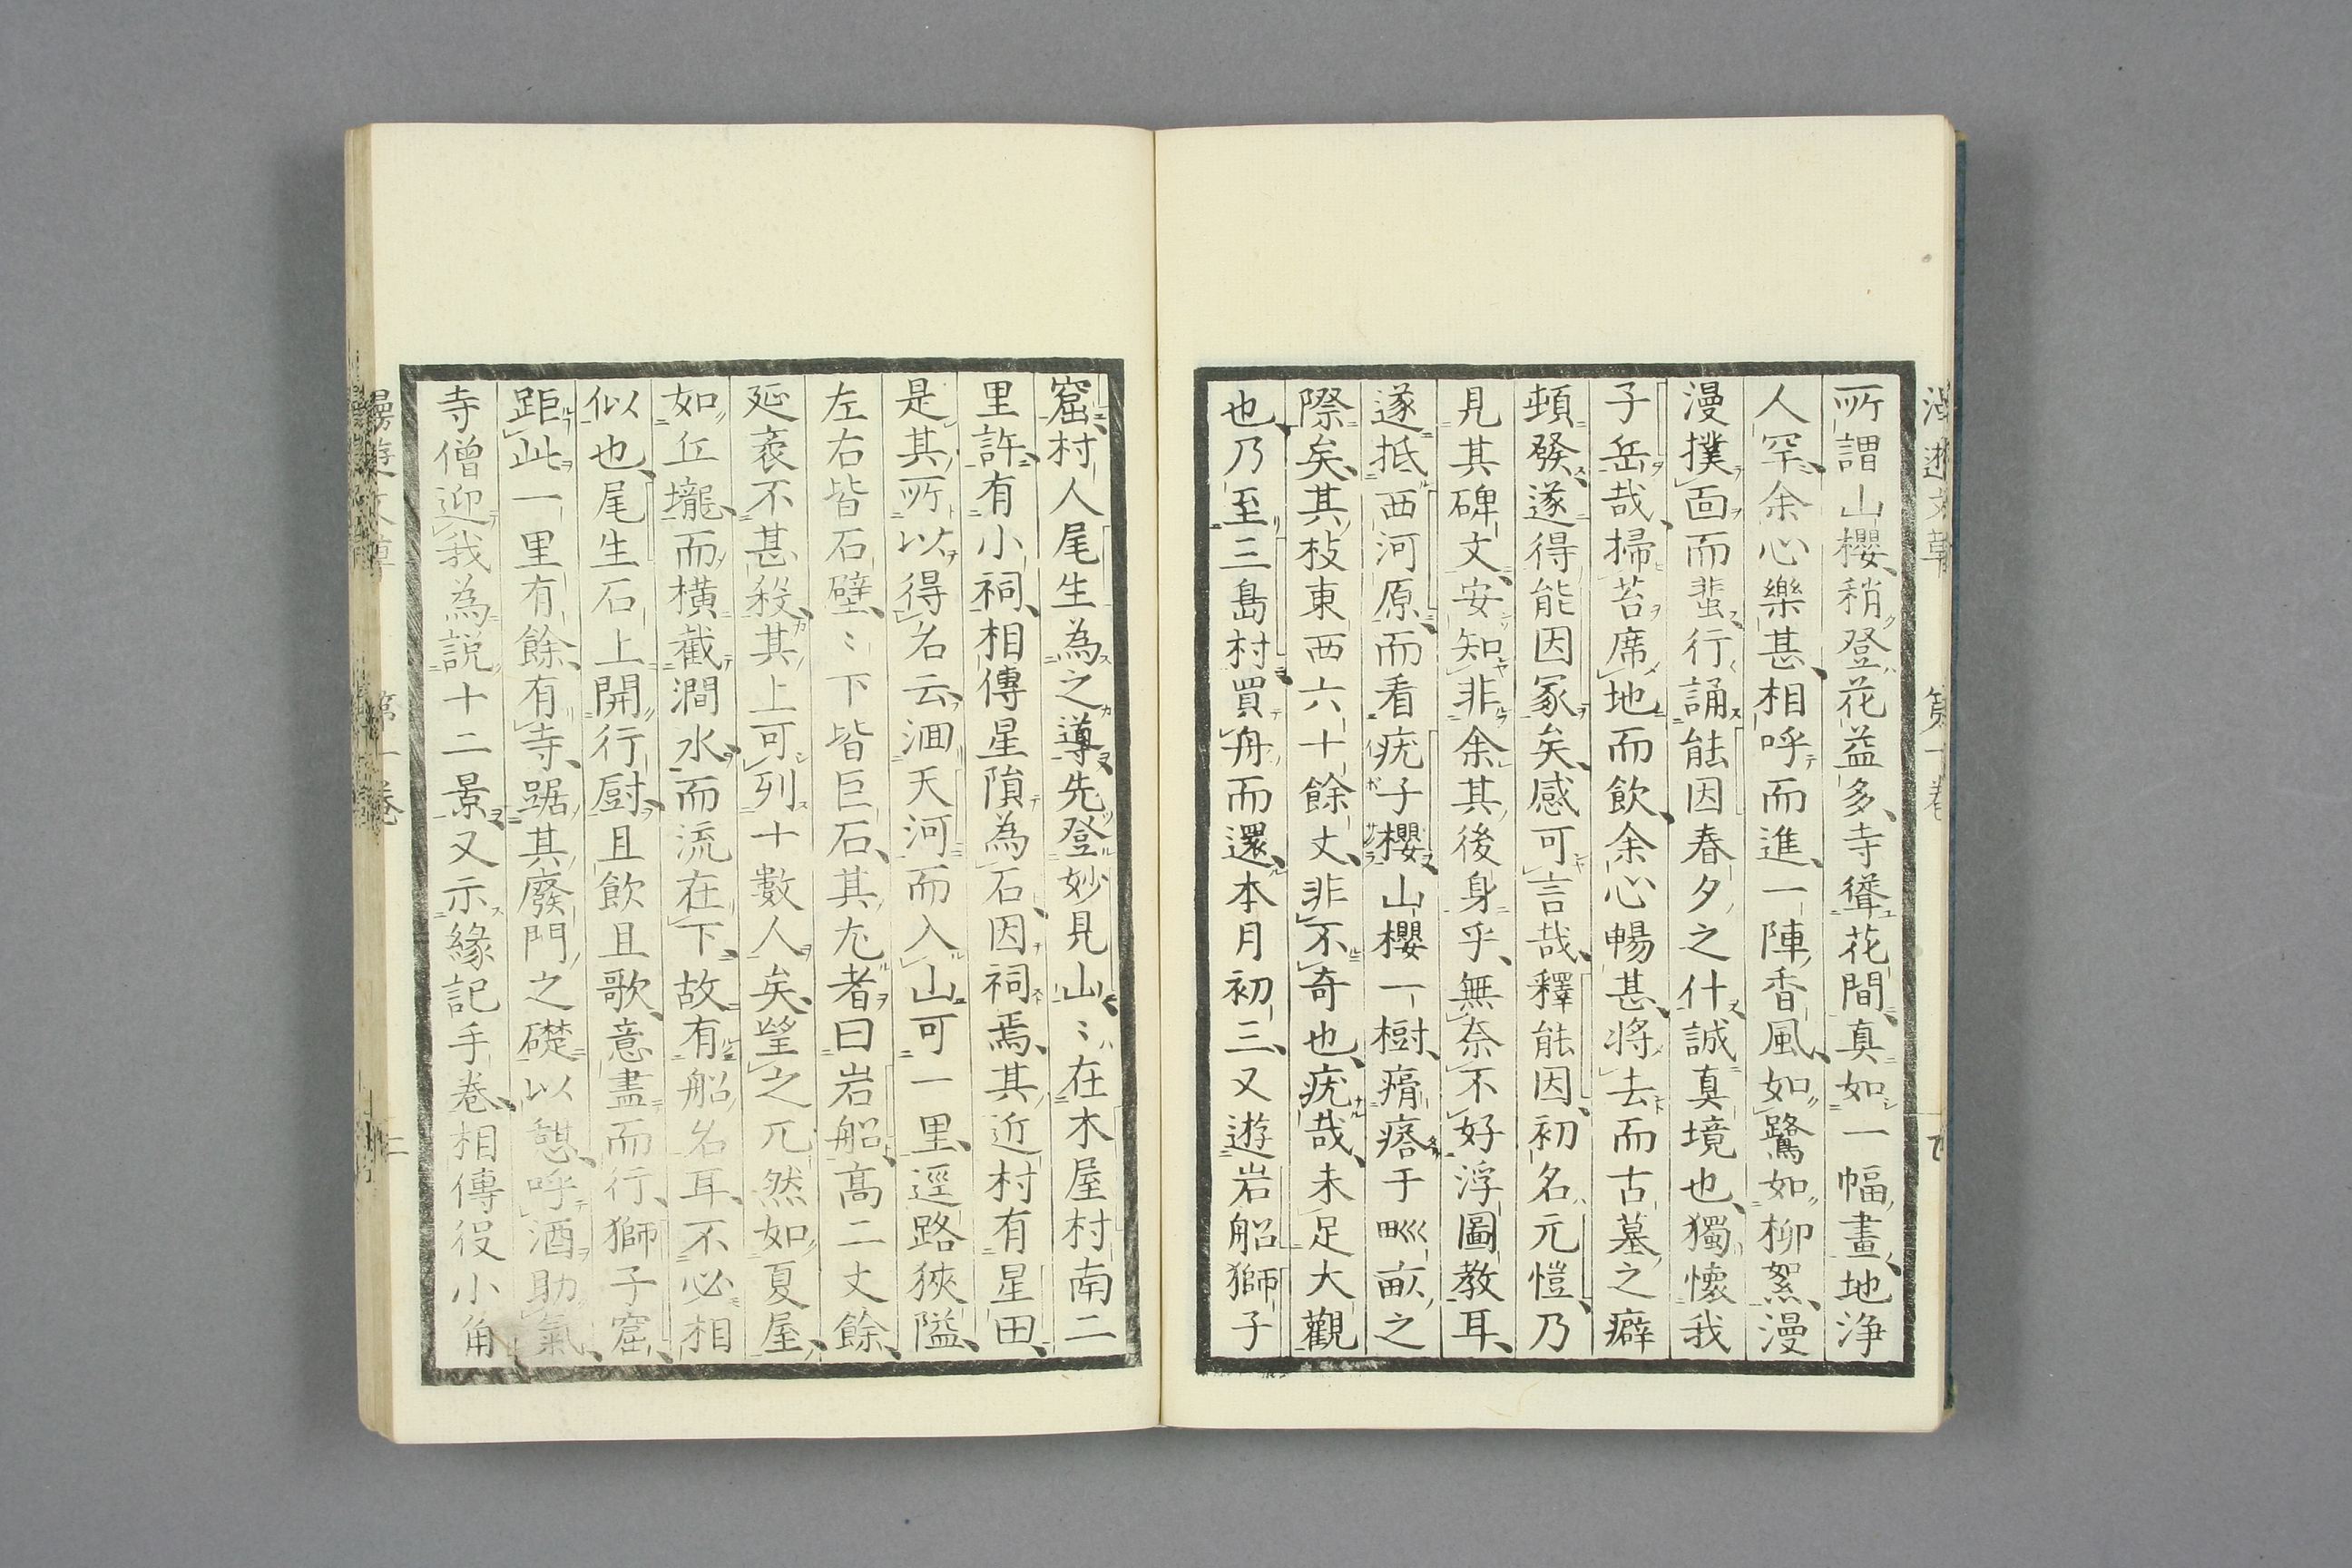 所謂山櫻、稍登花益多、寺聳花間、真如一幅畫、地浄
人罕、余心樂甚、相呼而進、一陣香風、如鷺如柳絮、漫
漫撲面而蜚、行誦能因春夕之什、誠真境也、獨懐我
子岳哉、掃苔席地而飲、余心暢甚、將去而古墓之癖
頓發、遂得能因冢矣、感可言哉、釋能因、初名元愷、乃
見其碑文、安知非余其後身乎、無奈不好浮圖教耳、
遂抵西河原、而看疣子櫻、山櫻一樹、瘠瘩于甽畝之
際矣、其枝東西六十餘丈、非不奇也、疣哉、未足大觀
也、乃至三島村、買舟而還、本月初三、又遊岩船獅子
窟、村人尾生為之導、先登妙見山、〻在木屋村南二
里許、有小祠、相傳星隕為石、因祠焉、其近村有星田、
是其所以得名云、沺天河而入山可一里、逕路狹隘、
左右皆石壁、〻下皆巨石、其尢者曰岩船、高二丈餘、
延袤不甚殺、其上可列十數人矣、望之兀然如夏屋、
如丘壠、而橫截澗水而流在下、故有船名耳、不必相
似也、尾生石上開行厨、且飲且歌、意盡而行、獅子窟、
距此一里有餘、有寺、踞其廢門之礎以憩、呼酒助氣、
寺僧迎我為説十二景、又示緣記手卷、相傳役小角
漫遊文草